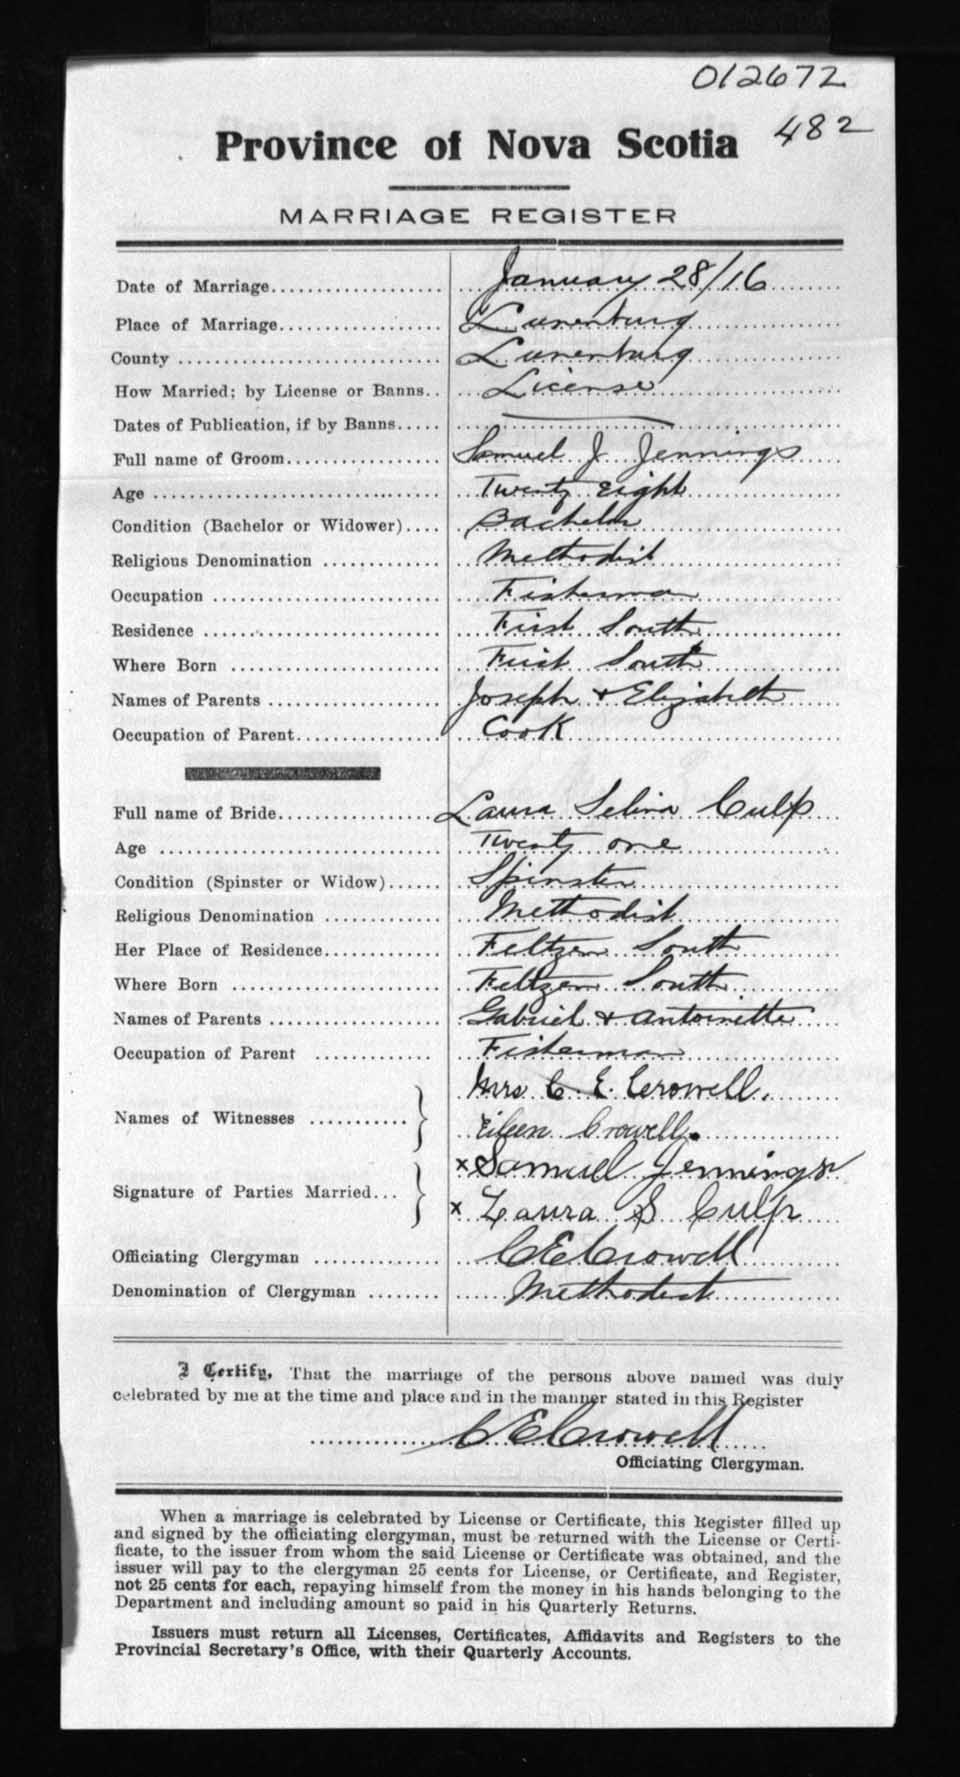 012672
482
Province of Nova Scotia
MARRIAGE REGISTER
Date of Marriage.................... January 28/16
Place of Marriage................... Lunenburg
County .............................. Lunenburg
How Married; by License or Banns.. License
Dates of Publication, if by Banns..... ———
Full name of Groom................. Samuel J Jennings
Age ................................. Twenty eight
Condition (Bachelor or Widower).... Bachelor
Religious Denomination ............. Methodist
Occupation .......................... Fisherman
Residence ........................... First South
Where Born ........................ First South
Names of Parents .................... Joseph + Elizabeth
Occupation of Parent................. Cook
Full name of Bride................... Laura Selina Culp
Age ................................ Twenty one
Condition (Spinster or Widow)...... Spinster
Religious Denomination ............. Methodist
Her Place of Residence............. Feltzen South
Where Born ........................ Feltzen South
Names of Parents .................... Gabriel + Antoinette
Occupation of Parent .............. Fisherman
Mrs C E. Crowell.
Names of Witnesses ...........
Eileen Crowell.
x Samuel Jennings
Signature of Parties Married...
x Laura S Culp
Officiating Clergyman ............... C E Crowell
Denomination of Clergyman ........ Methodist
I Certify, That the marriage of the persons above named was duly
celebrated by me at the time and place and in the manner stated in this Register
C E Crowell
Officiating Clergyman.
When a marriage is celebrated by License or Certificate, this Register filled up
and signed by the officiating clergyman, must be returned with the License or Certi-
ficate, to the issuer from whom the said License or Certificate was obtained, and the
issuer will pay to the clergyman 25 cents for License, or Certificate, and Register,
not 25 cents for each, repaying himself from the money in his hands belonging to the
Department and including amount so paid in his Quarterly Returns.
Issuers must return all Licenses, Certificates, Affidavits and Registers to the
Provincial Secretary's Office, with their Quarterly Accounts.